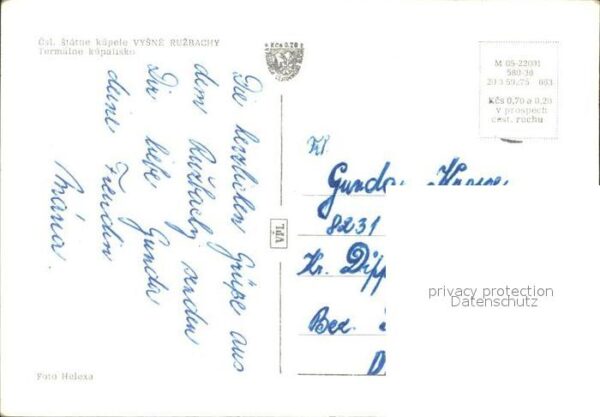 Čsl. štátne kúpele VYŠNÉ RUŽBACHY
Termálne kúpalisko
Kčs 0,20
M 05-22001
580-30
20 3 59/75 003
Kčs 0,70 a 0,20
v prospech
cest. ruchu
Die herzlichen Grüße aus
dem Ružbachy senden
Dir liebe Gunda
deine Freudin
Mária.
VPL
Gunda
8231
Kr. Dipp
Bez.
D
privacy protection
Datenschutz
Foto Helexa